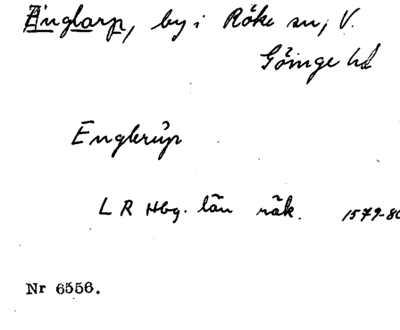 Änglarp, by i Röke sn, V.
Göinge hd
Englerup
L R Hbg. län räk. 1579-80
Nr 6556.